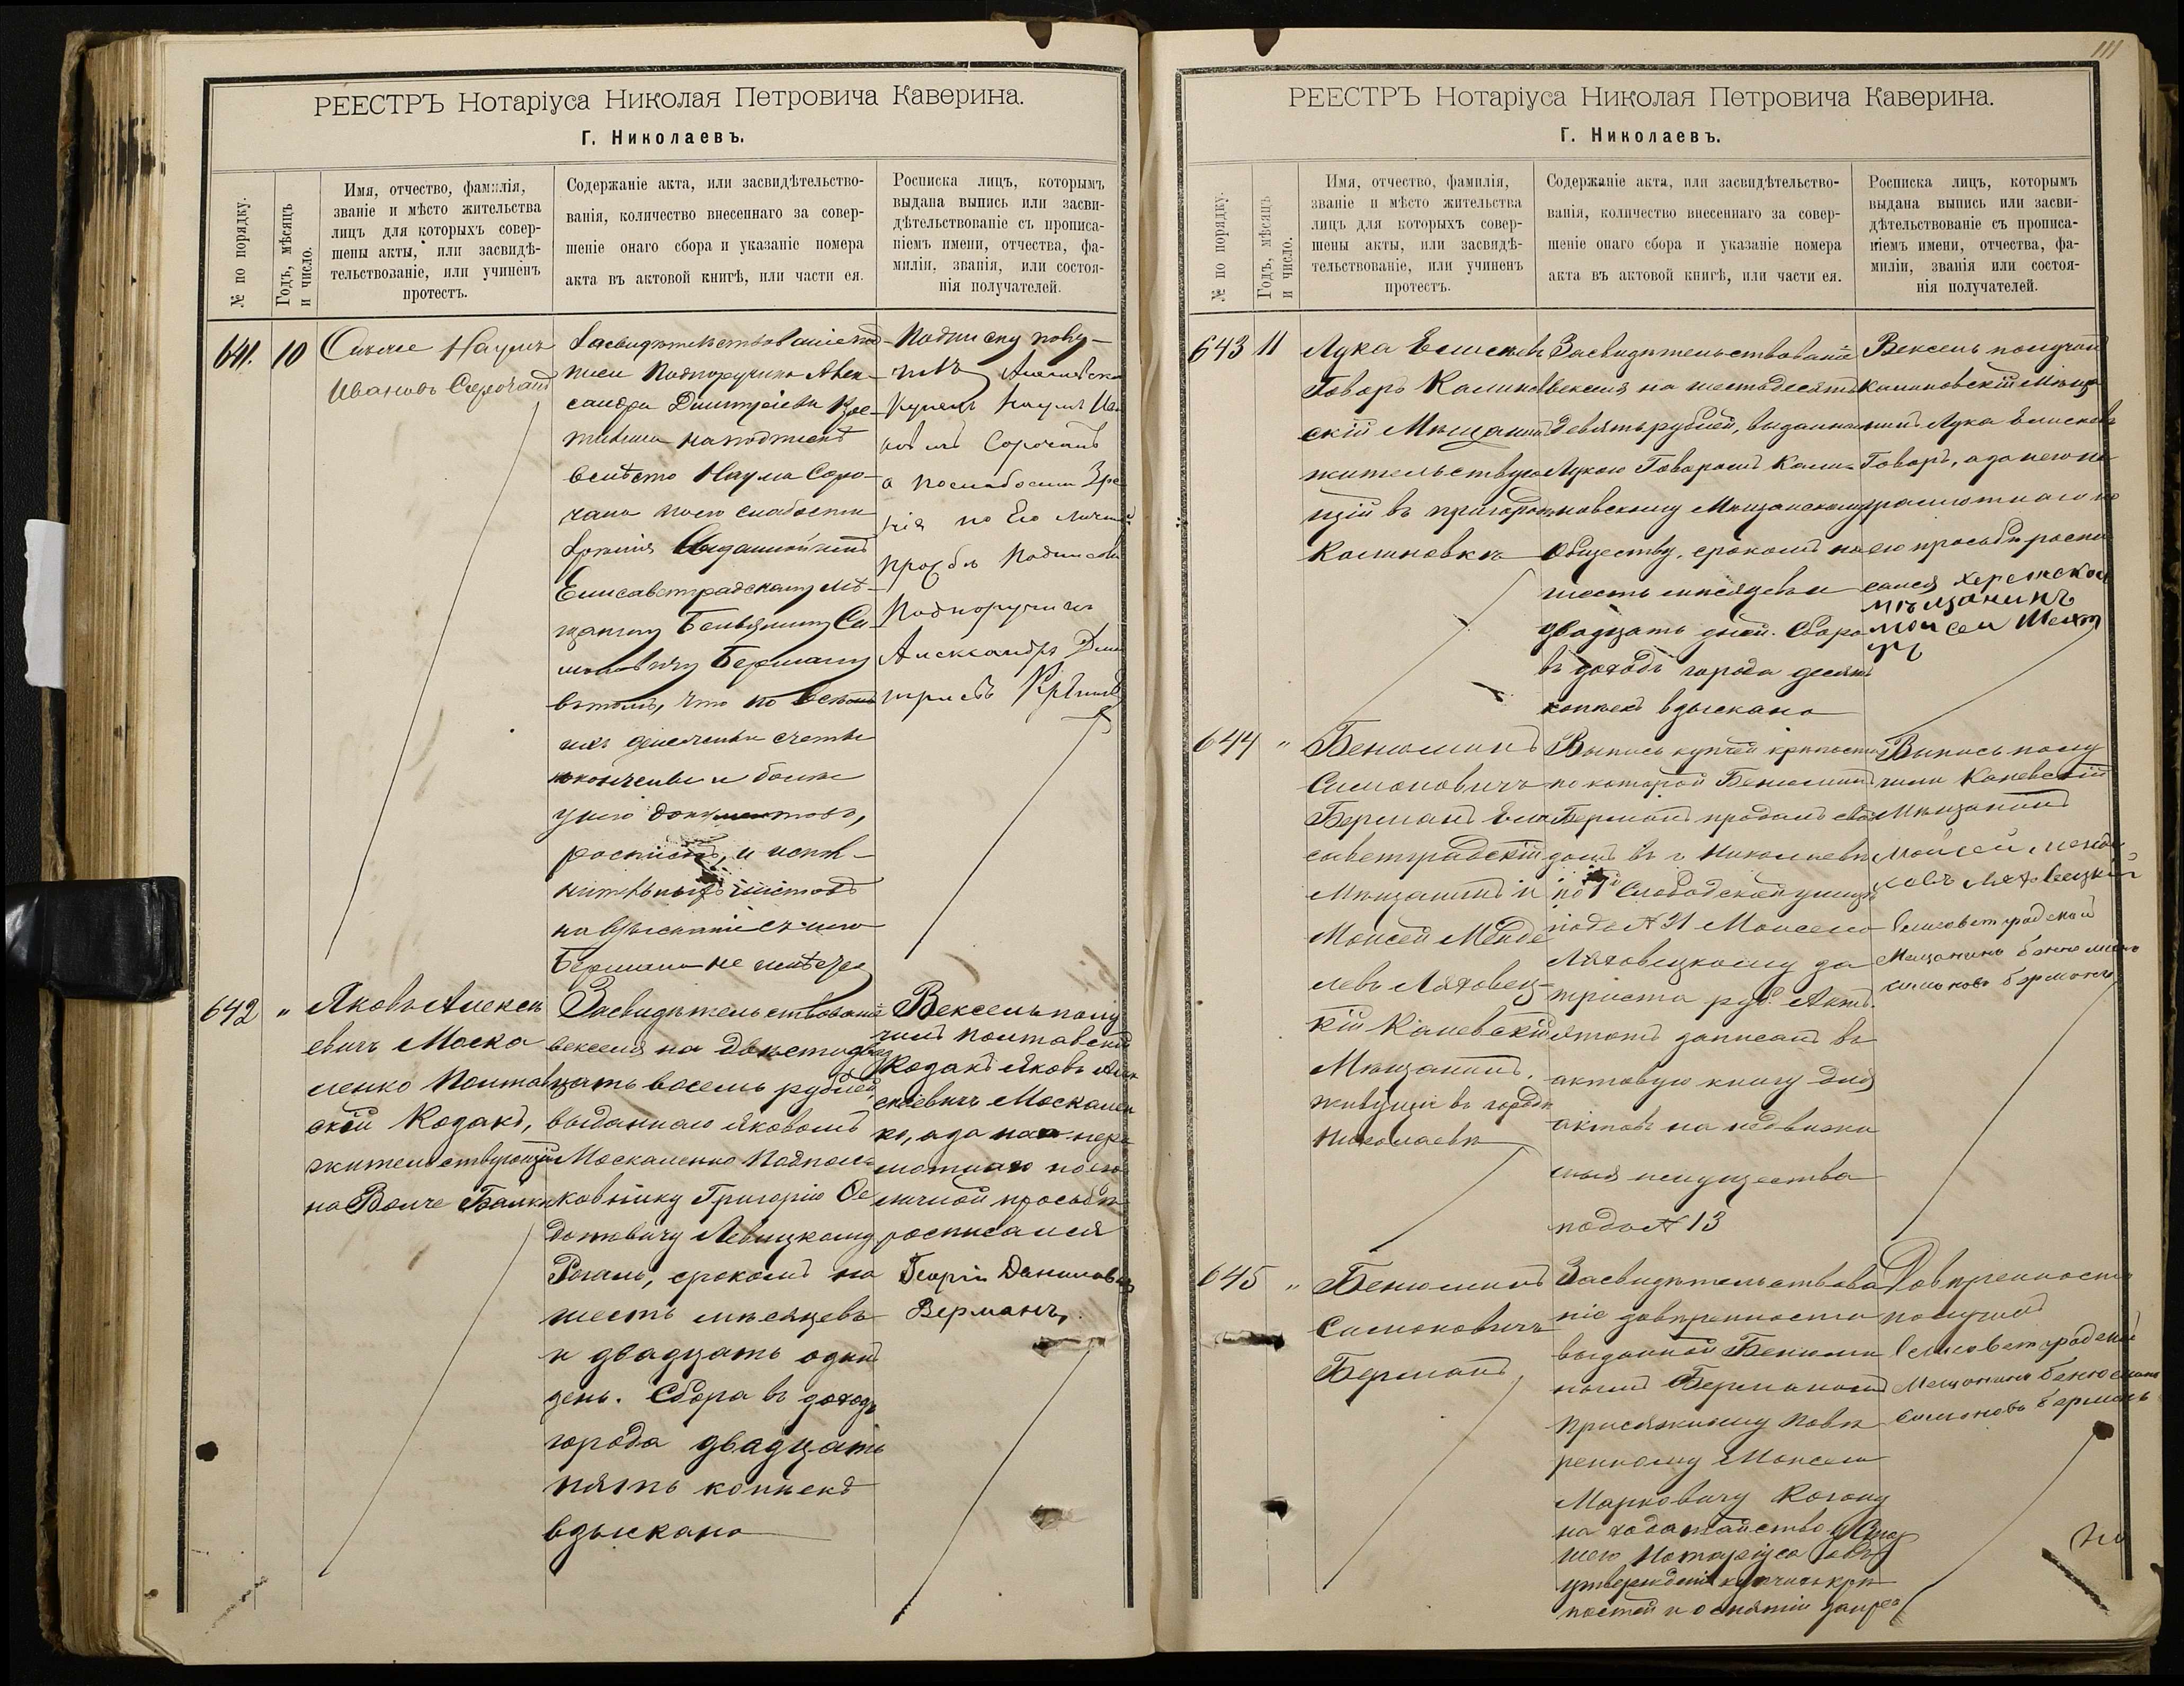 РЕЕСТРЪ Нотаріуса Николая Петровича Каверина.
Г. Николаевъ.
№ по порядку.
Годъ, мѣсяцъ
и число.
Имя, отчество, фамилія,
званіе и мѣсто жительства
лицъ для которыхъ совер-
шены акты, или засвидѣ-
тельствованіе, или учиненъ
протестъ.
Содержаніе акта, или засвидѣтельство-
ванія, количество внесеннаго за совер-
шеніе онаго сбора и указаніе номера
акта въ актовой книгѣ, или части ея.
Росписка лицъ, которымъ
выдана выпись или засви-
дѣтельствованіе съ прописа-
ніемъ имени, отчества, фа-
миліи, званія, или состоя-
нія получателей.
641. 10
Наумъ
Ивановъ Сорочанъ
Засвидѣтельствованіе под-
писи Подпоручика Алек-
сандра Дмитріева
на подписке
вместо Наума Соро-
чана по его слабости
зрѣнія выданной имъ
Елисаветградскому мѣ-
щанину Беньямину Си-
моновичу Берману
въ томъ, что по всемъ
денежные счеты
окончены и болѣе
у него документовъ,
росписокъ, и испол-
нительныхъ листовъ
на взысканіе съ него
Бермана не имѣется
Подписку полу-
чилъ
Купецъ Наумъ Ива
новъ Сорочанъ
а по слабости Зре
нія по Его личной
прозбѣ Подписалъ
Подпоручикъ
Александръ Дми
тріевъ
642 "
Яковъ Алексѣ
евичъ Моска
ленко Полтав
скій Козакъ,
жительствующій
на Волче Балке
Засвидѣтельствованіе
векселя на двѣсти двад
цать восемь рублей,
выданнаго Яковомъ
Москаленко Подпол-
ковнику Григорію Ѳе
дотовичу Левицкому
Рогаль, срокомъ на
шесть мѣсяцевъ
и двадцать одинъ
день. Сбора въ доходъ
города двадцать
пять копѣекъ
взыскано
Вексель полу
чилъ Полтавскій
Козакъ Яковъ Алек
сѣевичъ Москален
ко, а за него негра
мотнаго по его
личной просьбѣ
росписался
Георгій Даниловъ
Верманъ,
111
РЕЕСТРЪ Нотаріуса Николая Петровича Каверина.
Г. Николаевъ.
№ по порядку.
Годъ, мѣсяцъ
и число.
Имя, отчество, фамилія,
званіе и мѣсто жительства
лицъ для которыхъ совер-
шены акты, или засвидѣ-
тельствованіе, или учиненъ
протестъ.
Содержаніе акта, или засвидѣтельство-
ванія, количество внесеннаго за совер-
шеніе онаго сбора и указаніе номера
акта въ актовой книгѣ, или части ея.
Росписка лицъ, которымъ
выдана выпись или засви-
дѣтельствованіе съ прописа-
ніемъ имени, отчества, фа-
миліи, званія или состоя-
нія получателей.
643 11
Лука Елисеевъ
Говоръ Калинов
скій Мѣщанинъ
жительствую
щій въ пригородѣ
Калиновкѣ
Засвидѣтельствованіе
векселя на шестьдесятъ
девять рублей, выданнаго
Лукою Говоромъ Кали-
новскому Мѣщанскому
Обществу, срокомъ на
шесть мѣсяцевъ и
двадцать дней. Сбора
въ доходъ города десять
копѣекъ взыскано
Вексель получилъ
Калиновскій Мѣща
нинъ Лука Елисеевъ
Говоръ, а за него не
грамотнаго по
его просьбѣ роспи
сался Херсонской
мѣщанинъ
Моисей
644 "
Бенюминъ
Симоновичъ
Берманъ Ели
саветградскій
Мѣщанинъ и
Моисей Менде
левъ Ляховец-
кій Каневскій
Мѣщанинъ,
живущіе въ городѣ
Николаевѣ
Выпись купчей крѣпости
по которой Бенюминъ
Берманъ продалъ свой
домъ въ г. Николаевѣ
по 1й Слободской улицѣ
подъ № 21 Моисею
Ляховецкому за
триста руб. Актъ
этотъ записанъ въ
актовую книгу для
актовъ на недвижи
мыя имущества
подъ № 13
Выпись полу
чили Каневскій
Мѣщанинъ
Мойсей Менде
левъ Ляховецкій
Елисаветградской
Мещанинъ Бенюминъ
Симоновъ Берманъ
645 "
Бенюминъ
Симоновичъ
Берманъ
Засвидѣтельствова
ніе довѣренности
выданной Бенюми
номъ Берманомъ
Присяжному Повѣ
ренному Моисею
Марковичу Когону
на ходатайство у Стар
шего Нотаріуса объ
утвержденіи купчихъ крѣ
постей и о снятіи запре
Довѣренность
получилъ
Елисаветградской
Мещанинъ Бенюминъ
Симоновъ Берманъ